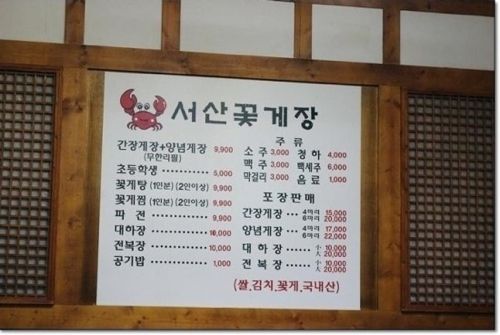 서산꽃게장
간장게장+양념게장 9,900
(무한리필)
초등학생 5,000
꽃게탕 (1인분) (2인이상) 9,900
꽃게찜 (1인분) (2인이상) 9,900
파전 9,900
대하장 10,000
전복장 10,000
공기밥 1,000
주류
소주 3,000 청하 4,000
맥주 3,000 백세주 6,000
막걸리 3,000 음료 1,000
포장판매
간장게장 4마리 15,000
6마리 20,000
양념게장 4마리 17,000
6마리 22,000
대하장 小 10,000
大 20,000
전복장 小 10,000
大 20,000
(쌀,김치,꽃게,국내산)